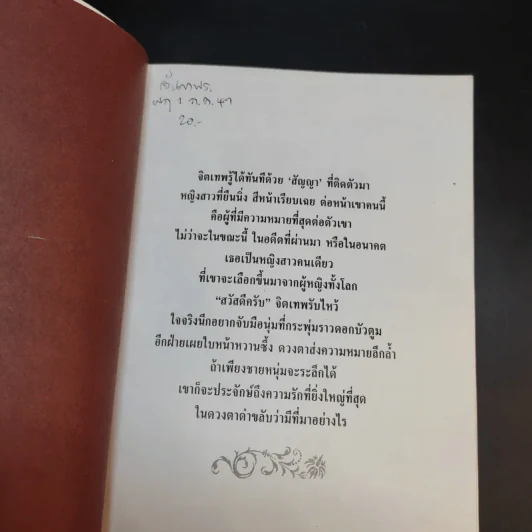 20.-
จิตเทพรู้ได้ทันทีด้วย ‘สัญญา’ ที่ติดตัวมา
หญิงสาวที่ยืนนิ่ง สีหน้าเรียบเฉย ต่อหน้าเขาคนนี้
คือผู้ที่มีความหมายที่สุดต่อตัวเขา
ไม่ว่าจะในขณะนี้ ในอดีตที่ผ่านมา หรือในอนาคต
เธอเป็นหญิงสาวคนเดียว
ที่เขาจะเลือกขึ้นมาจากผู้หญิงทั้งโลก
“สวัสดีครับ” จิตเทพรับไหว้
ใจจริงนึกอยากจับมือนุ่มที่กระพุ่มราวดอกบัวตูม
อีกฝ่ายเผยใบหน้าหวานซึ้ง ดวงตาส่งความหมายลึกล้ำ
ถ้าเพียงชายหนุ่มจะระลึกได้
เขาก็จะประจักษ์ถึงความรักที่ยิ่งใหญ่ที่สุด
ในดวงตาดำขลับว่ามีที่มาอย่างไร